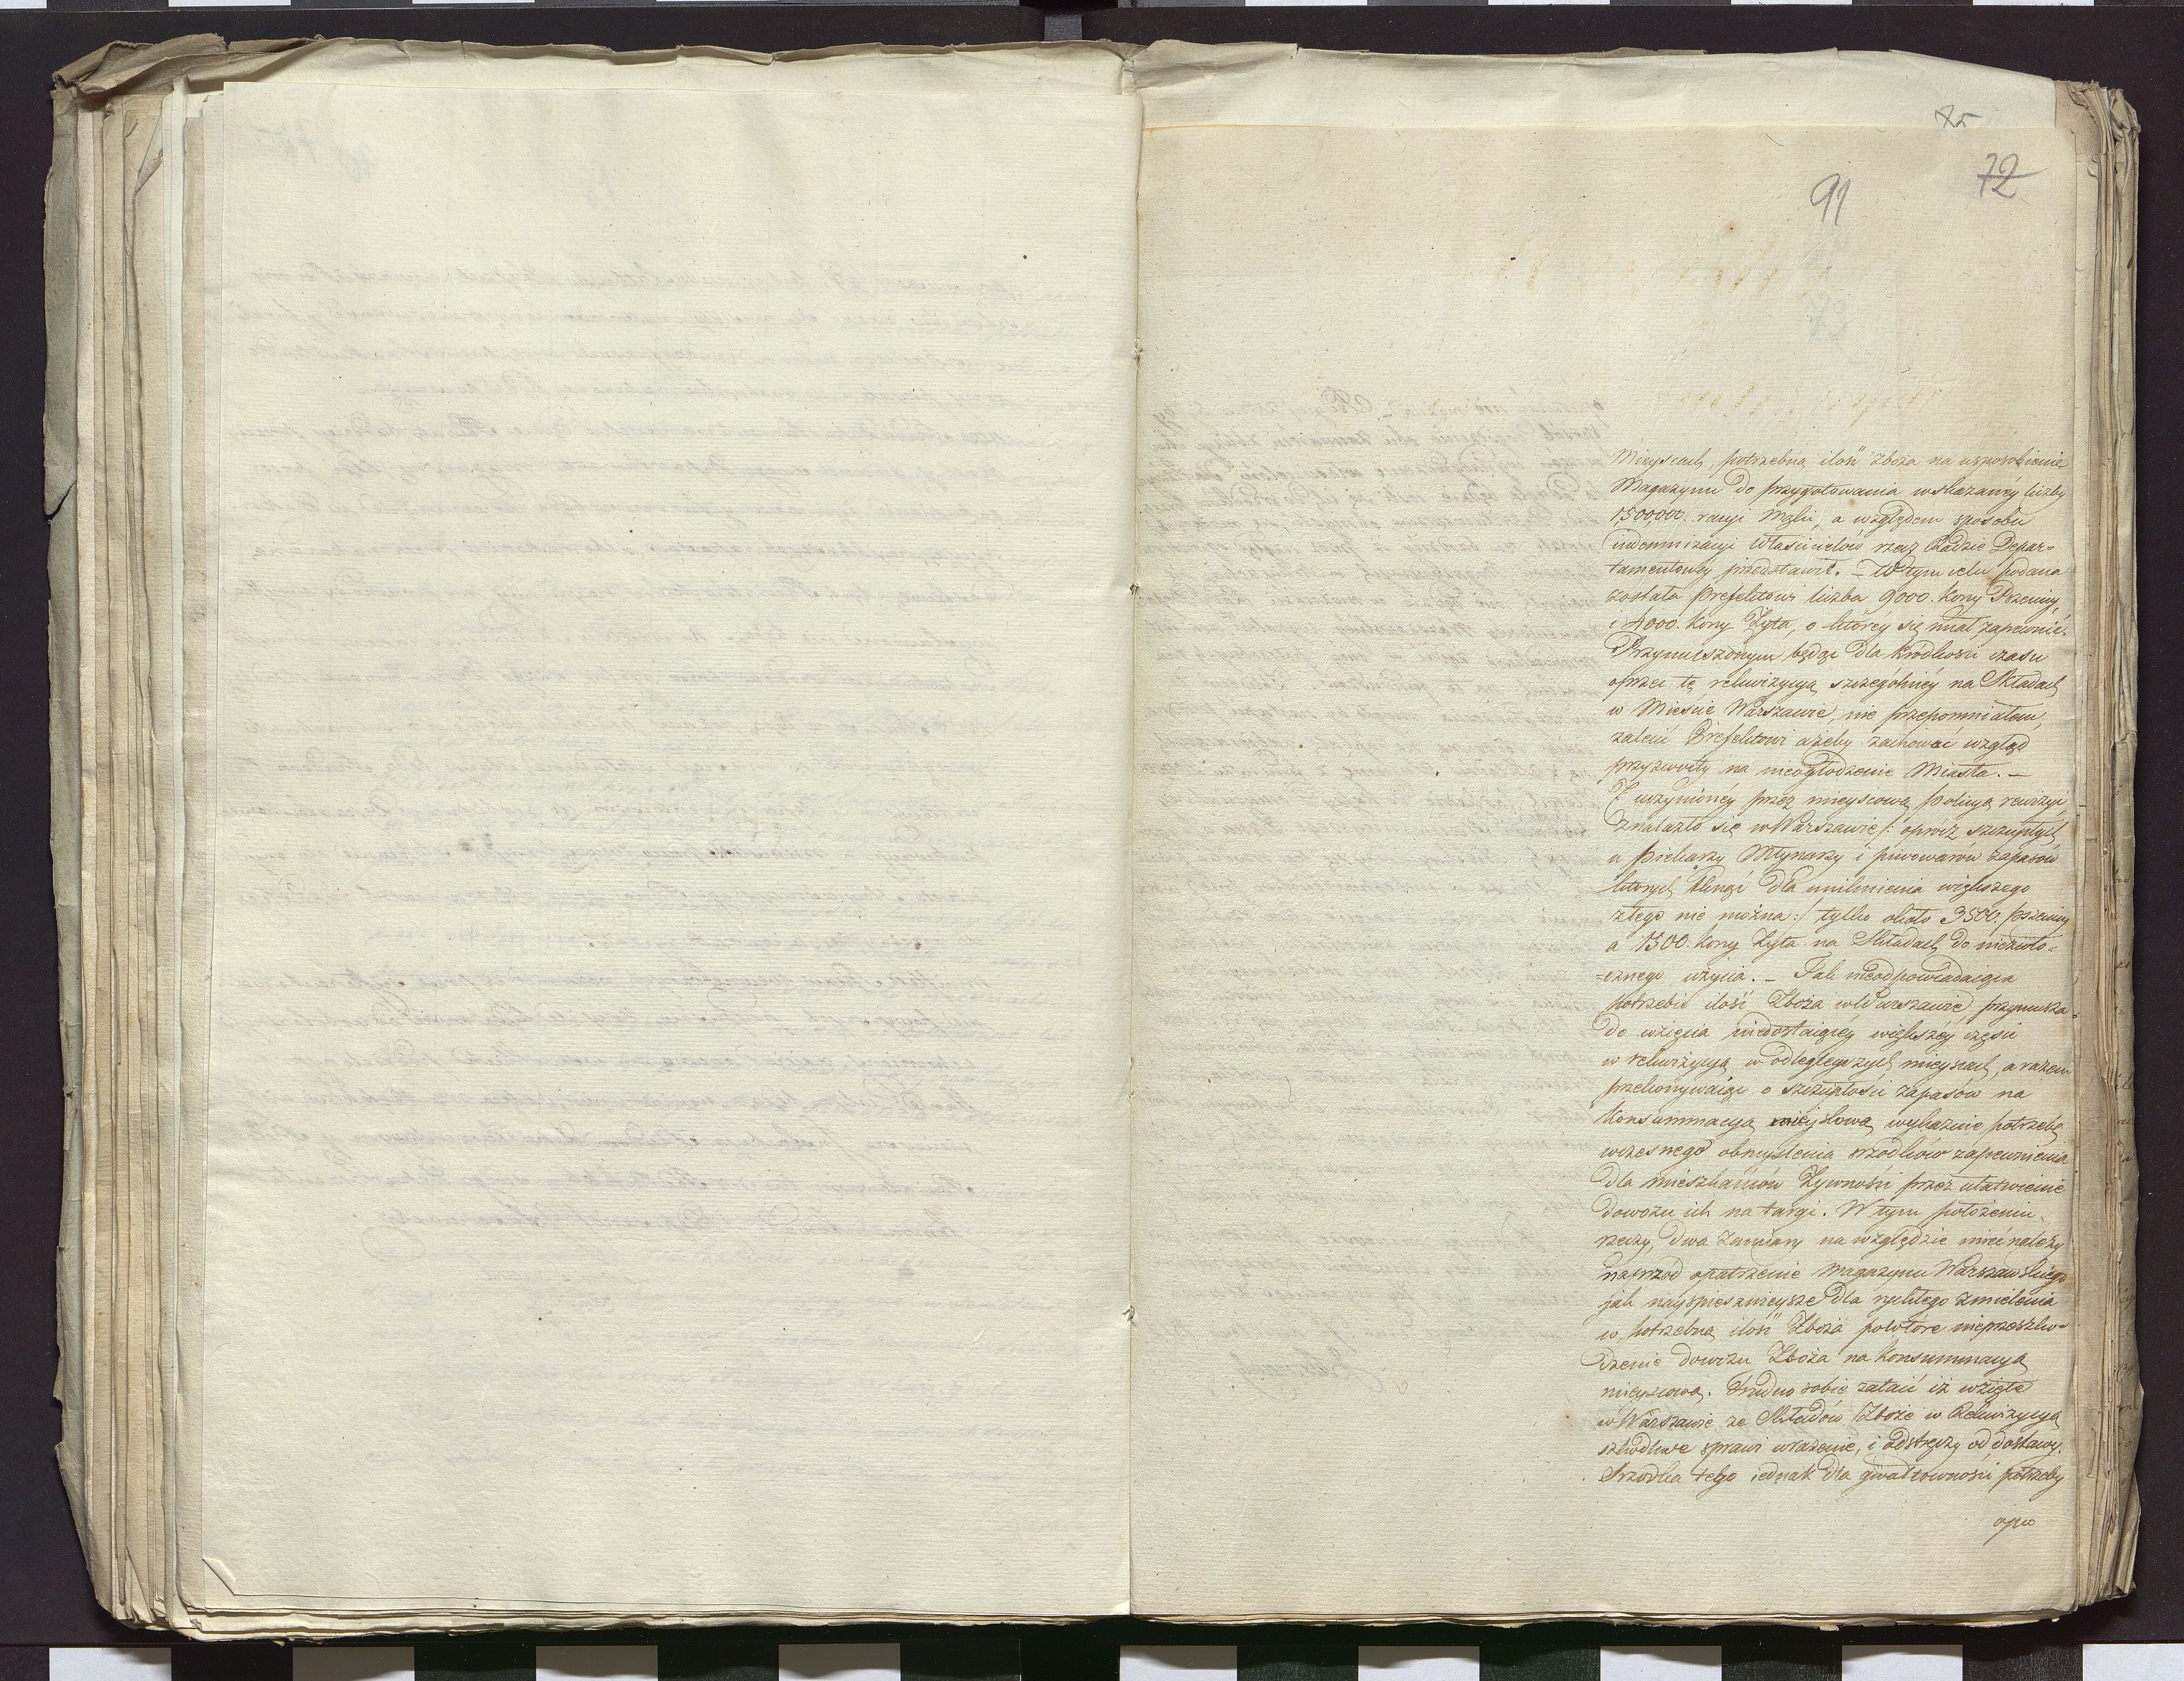 85
72
91
Mieyscach, potrzebną ilość zboża na usposobienie
Magazynu do przygotowania wskazanéy liczby
1,500,000. racyi Mąki, a względem sposobu
indemnizacyi Właścicielów rzecz Radzie Depar-
tamentowéy przedstawił. – W tym celu podana
została Prefektowi liczba 9000. Korcy Pszenicy,
i 4000. Korcy Żyta, o którey się miał zapewnić.
Przymuszonym będąc dla krótkości czasu
oprzeć tę rekwizycyą szczególniéy na Składach
w Mieście Warszawie, nie przepomniałem,
zalecić Prefektowi ażeby zachować wzgląd
przyzwoity na nieogłodzenie Miasta. –
Z uczynionéy przez mieyscową policyą rewizyi
znalazło się w Warszawie /: oprócz szczupłych
u piekarzy Młynarzy i piwowarów zapasów
których tknąć dla uniknienia większego
złego nie można :/ tylko około 3500. pszenicy
a 1500. Korcy Żyta na Składach do niezwło-
=cznego użycia. – Tak nieodpowiadaiąca
potrzebie ilość Zboża w Warszawie, przymusza
do wzięcia niedostaiącéy większéy części
w rekwizycyą w odlegleyszych mieyscach, a razem
przekonywaiąc o szczupłości zapasów na
Konsummacyą mieyscową wykazuie potrzebę
wczesnego obmyślenia srzodków zapewnienia
dla mieszkańców Żywności przez ułatwienie
dowozu ich na targi. W tym położeniu
rzeczy, dwa zamiary na względzie mieć należy
naprzód opatrzenie Magazynu Warszawskiego
jak nayspiesznieysze dla rychłego zmielenia
w potrzebną ilość Zboża powtóre nieprzeszko-
dzenie dowozu Zboża na Konsummacyą
mieyscową. Trudno sobie zataić iż wzięte
w Warszawie ze Składów Zboże w Rekwizycyą
szkodliwe sprawi wrażenie, i odstręczy od dostawy.
Srzodka tego iednak dla gwałtowności potrzeby
opu